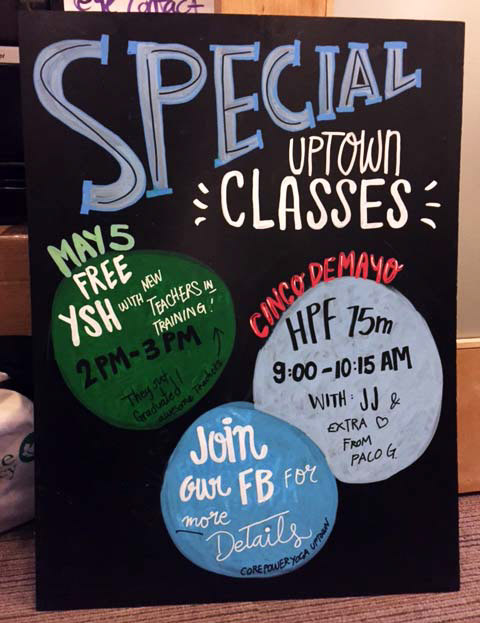 eye contact
SPECIAL
UPTOWN
CLASSES
MAY 5
FREE
YSH WITH NEW
TEACHERS IN
TRAINING!
2 PM - 3 PM
They just
Graduated!
awesome teachers
CINCO DE MAYO
HPF 75m
9:00 - 10:15 AM
WITH: JJ &
EXTRA ♡
FROM
PACO G.
Join
our FB FOR
more
Details
COREPOWER YOGA UPTOWN